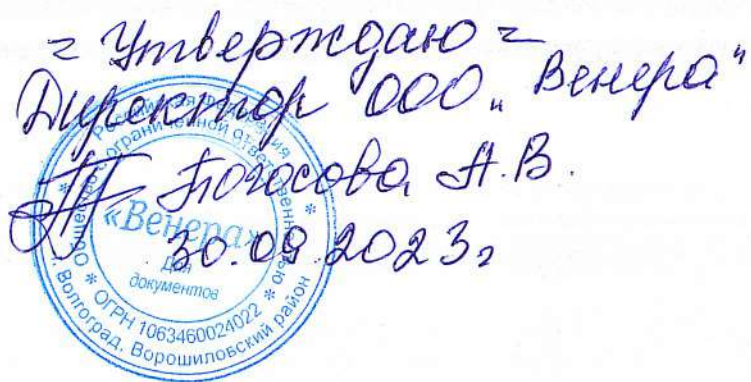 = Утверждаю =
Директор ООО „Венера"
Погосова А.В.
30.09.2023г
Российская Федерация
Общество с ограниченной ответственностью
«Венера»
Для
документов
* ОГРН 1063460024022 *
г. Волгоград. Ворошиловский район